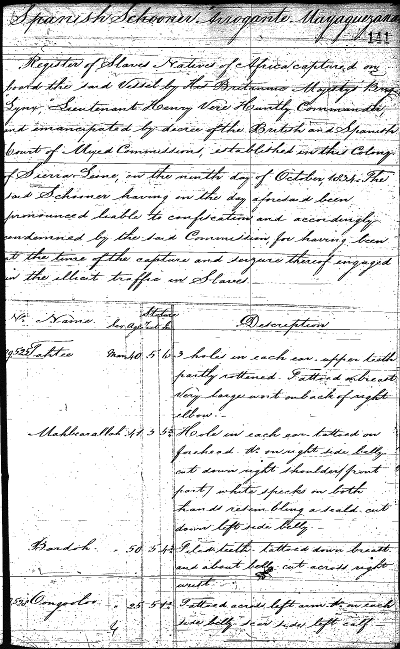 Spanish Schooner "Arrogante Mayaguezana
141
Register of Slaves Natives of Africa captured on
board the said Vessel by His Britannic Majestys Brig
Lynx, Lieutenant Henry Vere Huntly Commander,
and emancipated by decree of the British and Spanish
Court of Mixed Commissions, established in this Colony
of Sierra Leone, on the ninth day of October 1834. The
said Schooner having on the day aforesaid been
pronounced liable to confiscation and accordingly
condemned by the said Commission for having been
at the time of the capture and seizure thereof engaged
in the illicit traffic in Slaves
No. Name Sex Age Stature Feet In Description
Tahtee Man 40 5 6 3 hole in each ear. upper teeth
partly rottened. Tattooed on breast
Very large wart on back of right
elbow -
41 Hole in each ear tattooed on
forehead &c on right side belly
cut down right shoulder (front
part) white specks on both
hands resembling a scald. cut
down left side belly -
Bandoh " 50 5 4 Filed teeth tattooed down breast
and about belly cut across right
wrist
Congooloo " 25 5 Tattooed across left arm &c on each
side belly scar side left calf